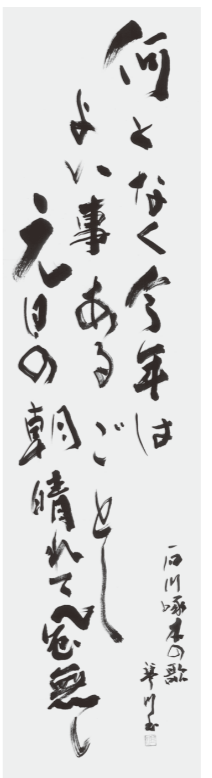 何となく今年は
よい事あるごとし
元日の朝晴れて風無し
石川啄木の歌